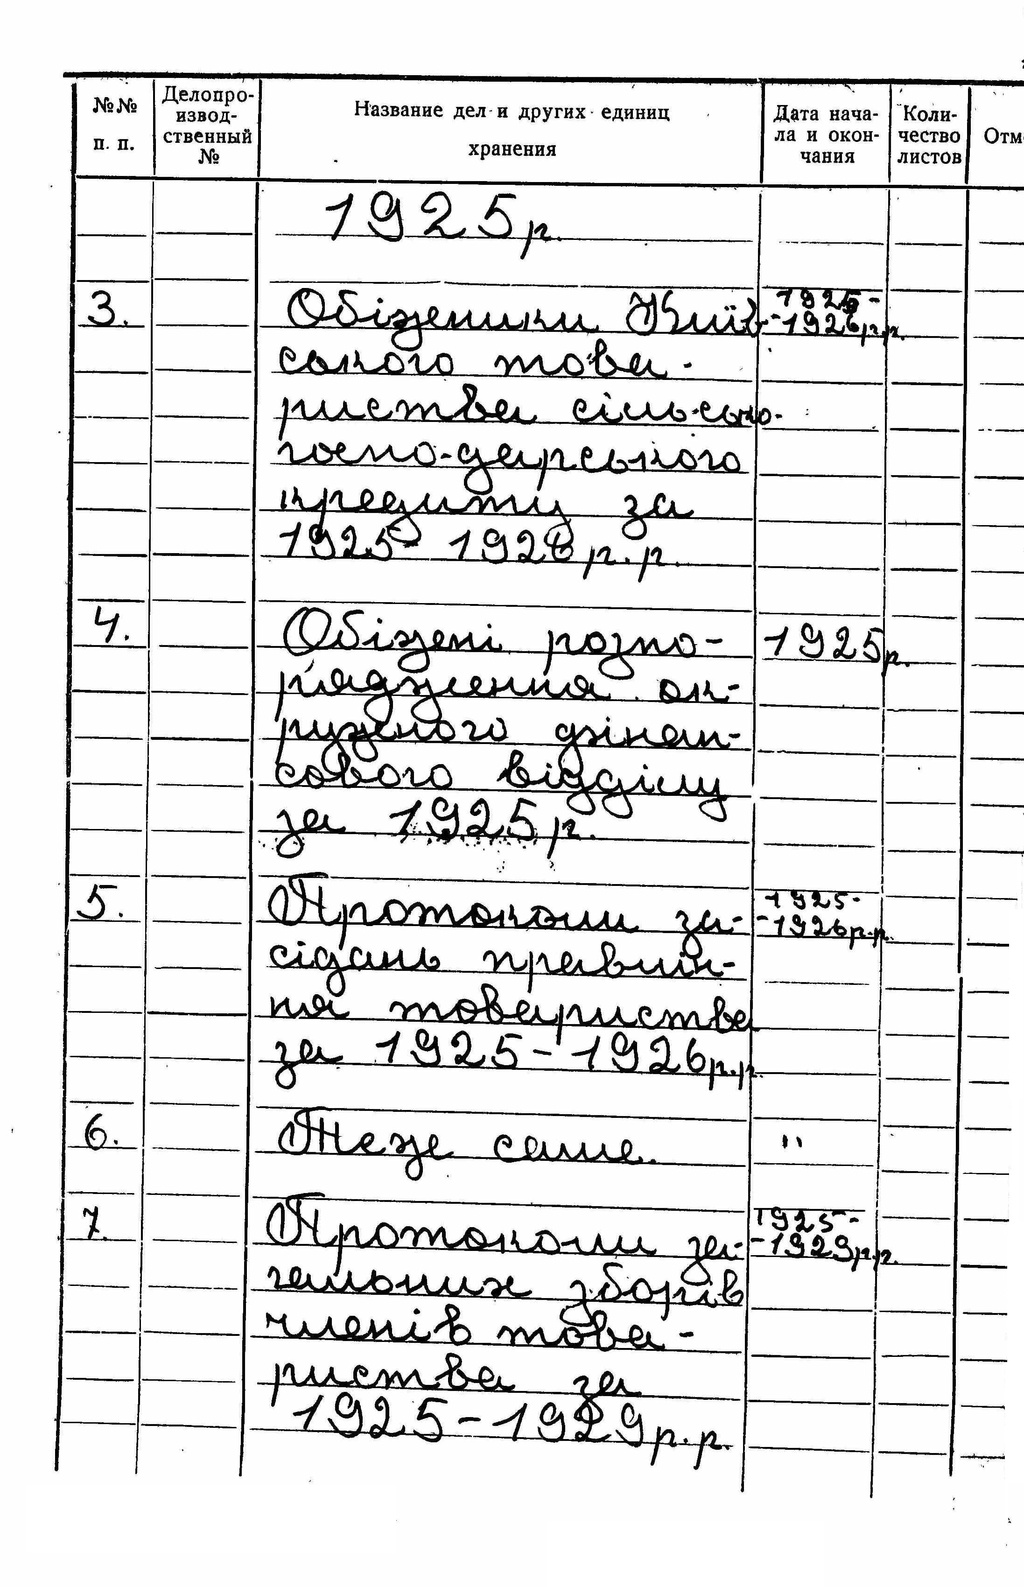 №№ п. п.
Делопро-
извод-
ственный
№
Название дел и других единиц
хранения
Дата нача-
ла и окон-
чания
Коли-
чество
листов
Отм
1925р.
3.
Обіжники Київ-
ського това-
риства сільсько-
госпо-дарського
кредиту за
1925-1926 р.р.
1925-
-1926р.р.
4.
Обіжні розпо-
рядження ок-
ружного фінан-
сового відділу
за 1925 р.
1925р.
5.
Протоколи за-
сідань правлін-
ня товариства
за 1925-1926р.р.
1925-
-1926р.р.
6.
Теж саме.
"
7.
Протоколи за-
гальних зборів
членів това-
риства за
1925-1929р.р.
1925-
-1929р.р.